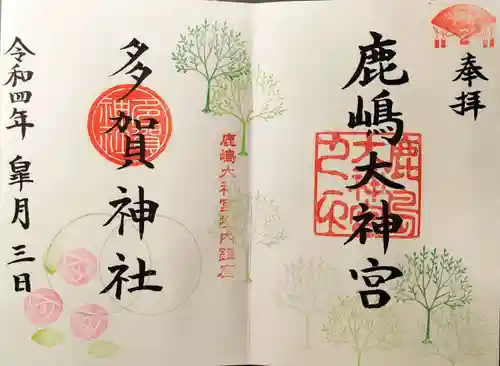 奉拝
鹿嶋大神宮
鹿嶋大神宮境内鎮座
多賀神社
令和四年 皐月 三日